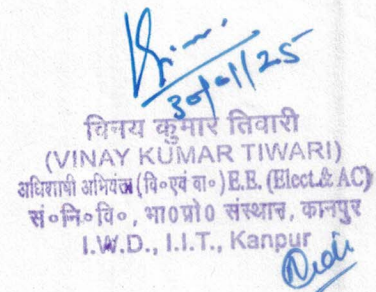 30/01/25
विनय कुमार तिवारी
(VINAY KUMAR TIWARI)
अधिशाषी अभियंता (वि०एवं वा०) E.E. (Elect.& AC)
सं०नि०वि०, भा0प्रौ0 संस्थान, कानपुर
I.W.D., I.I.T., Kanpur